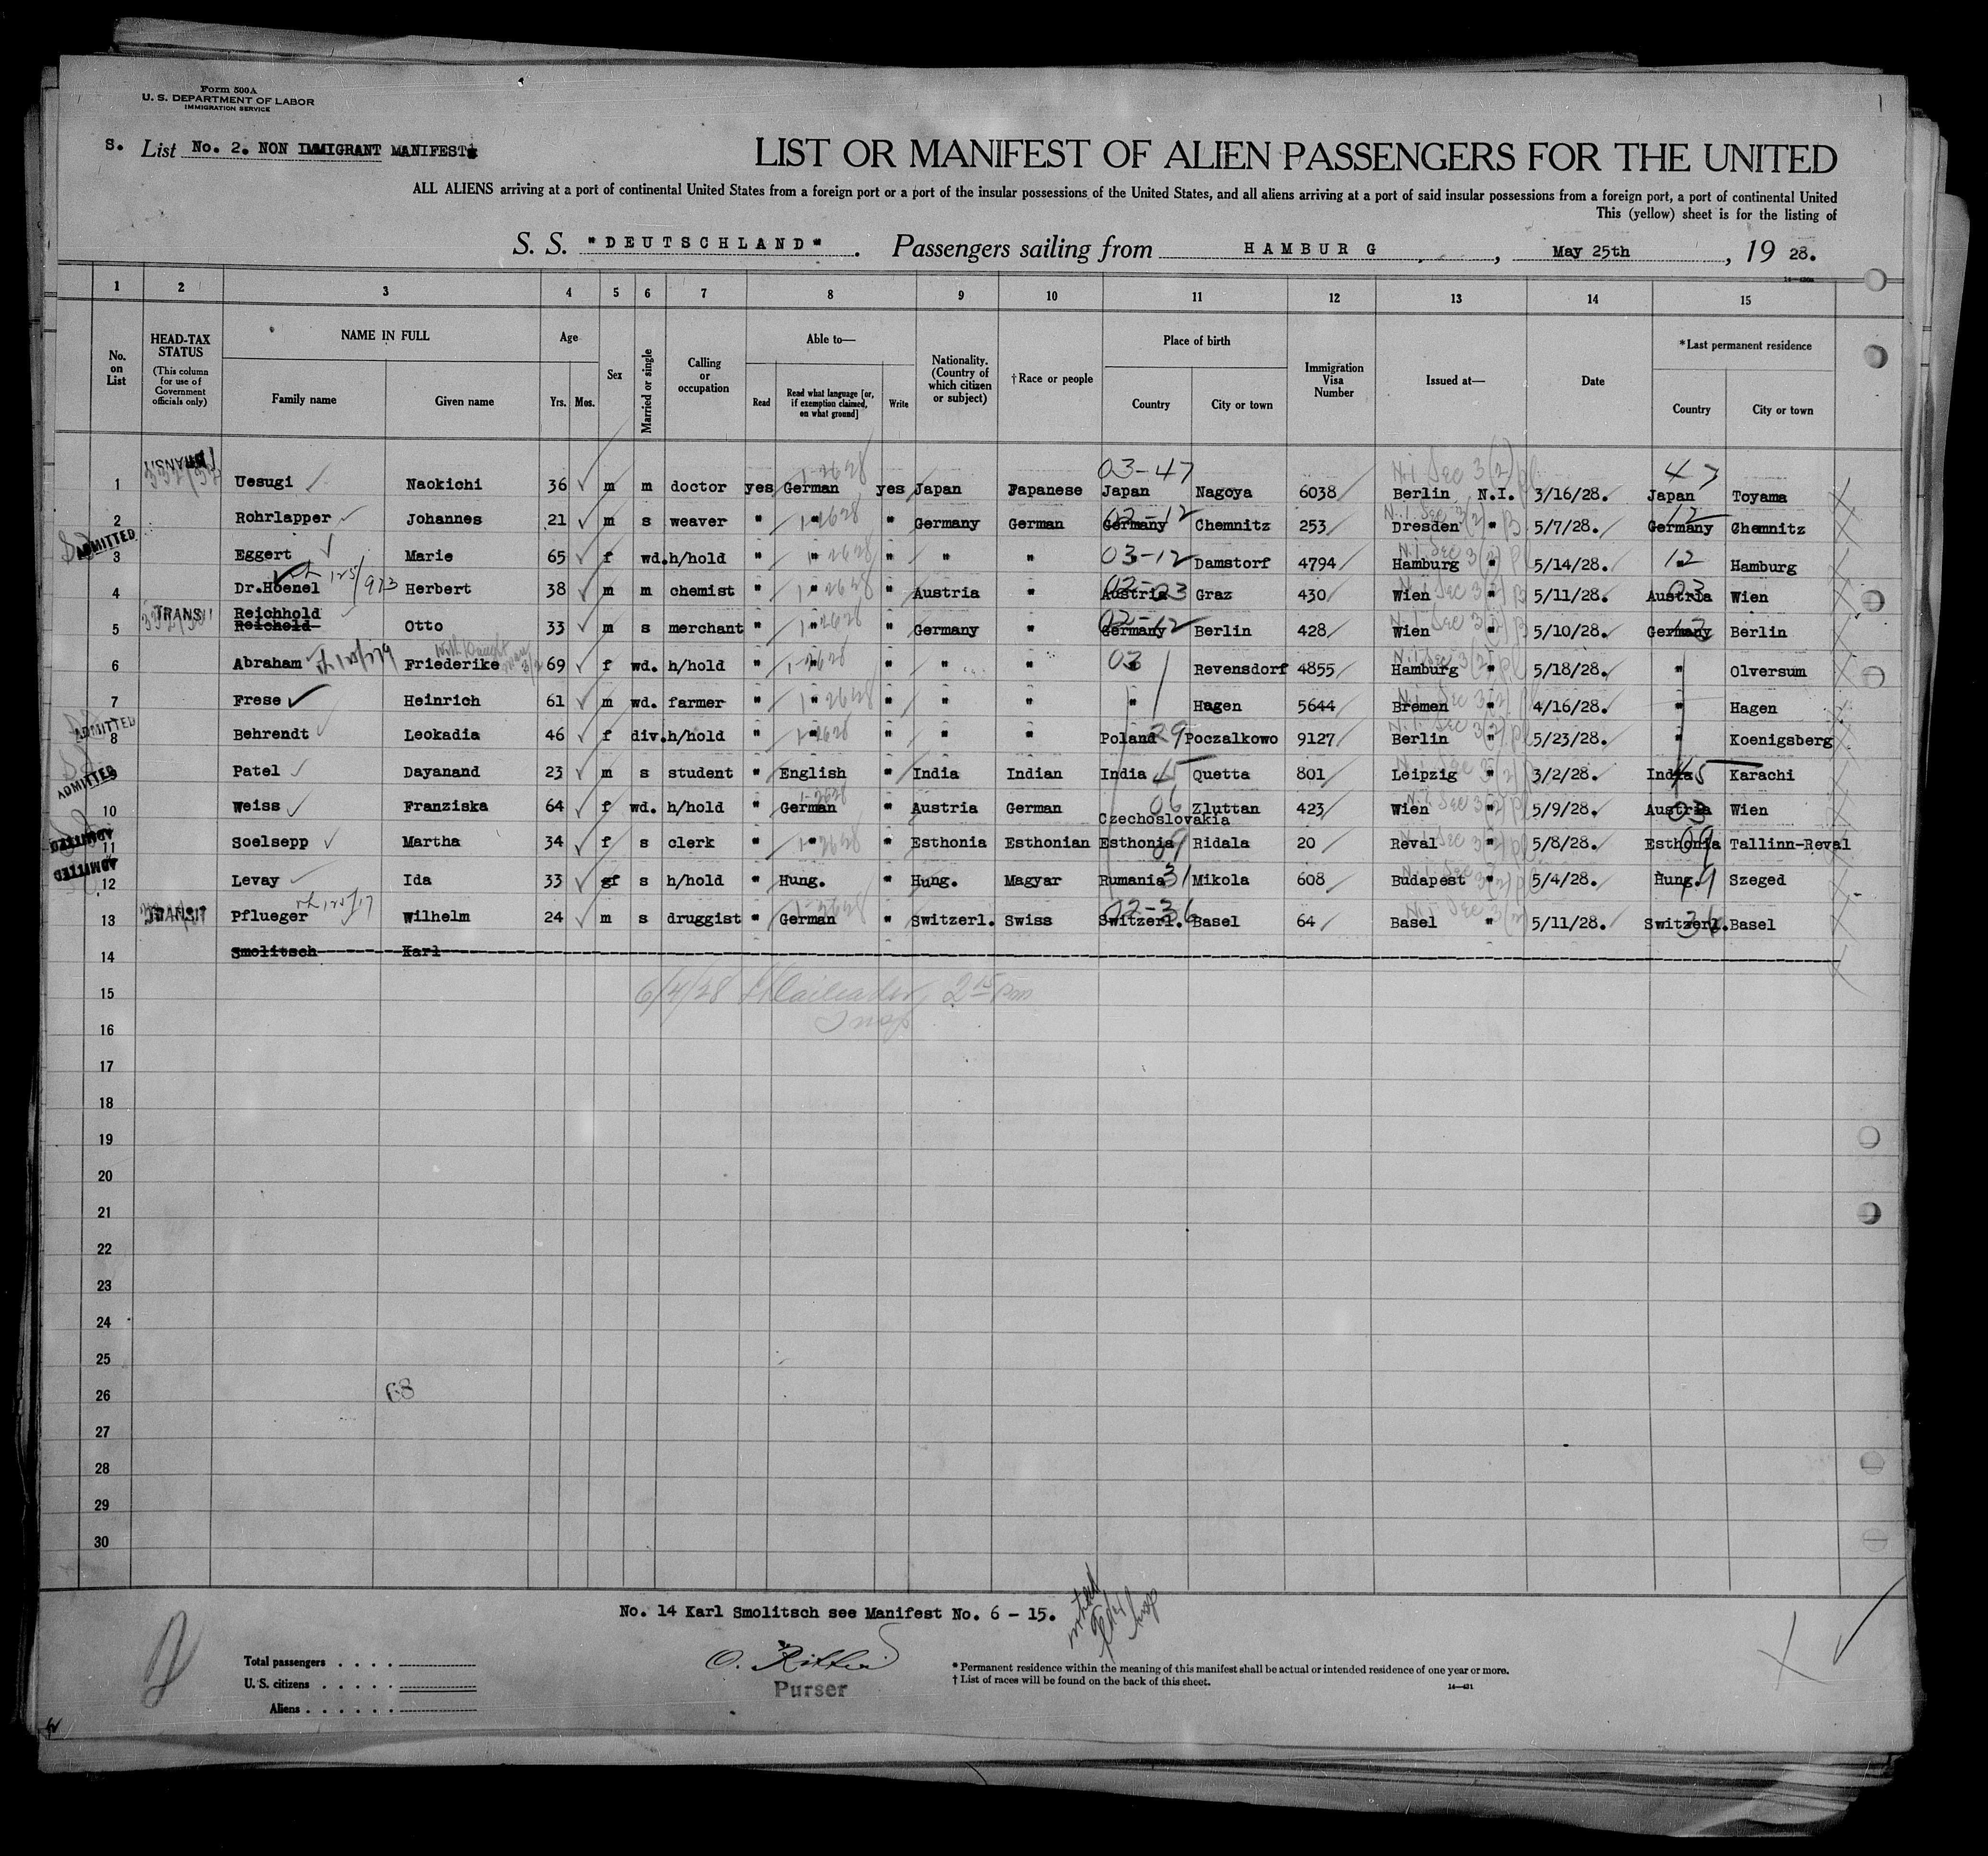 Form 500A
U. S. DEPARTMENT OF LABOR
IMMIGRATION SERVICE
S. List No. 2. NON IMMIGRANT MANIFEST
LIST OR MANIFEST OF ALIEN PASSENGERS FOR THE UNITED
ALL ALIENS arriving at a port of continental United States from a foreign port or a port of the insular possessions of the United States, and all aliens arriving at a port of said insular possessions from a foreign port, a port of continental United
This (yellow) sheet is for the listing of
S. S. "DEUTSCHLAND". Passengers sailing from HAMBURG, May 25th, 1928.
1 2 3 4 5 6 7 8 9 10 11 12 13 14 15
No. on List
HEAD-TAX STATUS
(This column for use of Government officials only)
NAME IN FULL
Family name Given name
Age
Yrs. Mos.
Sex
Married or single
Calling or occupation
Able to—
Read
Read what language [or, if exemption claimed, on what ground]
Write
Nationality. (Country of which citizen or subject)
† Race or people
Place of birth
Country City or town
Immigration Visa Number
Issued at—
Date
* Last permanent residence
Country City or town
TRANSIT 03-47 47
1 Uesugi Naokichi 36 m m doctor yes German yes Japan Japanese Japan Nagoya 6038 Berlin N.I. 3/16/28. Japan Toyama
2 Rohrlapper Johannes 21 m s weaver " " " Germany German Germany Chemnitz 253 Dresden " 5/7/28. Germany Chemnitz
ADMITTED
3 Eggert Marie 65 f wd. h/hold " " " " " 03-12 Damstorf 4794 Hamburg " 5/14/28. " Hamburg
4 Dr. Hoenel Herbert 38 m m chemist " " " Austria " Austria Graz 430 Wien " 5/11/28. Austria Wien
TRANSIT Reichhold
5 Reichold Otto 33 m s merchant " " " Germany " Germany Berlin 428 Wien " 5/10/28. Germany Berlin
6 Abraham Friederike 69 f wd. h/hold " " " " " 03 Revensdorf 4855 Hamburg " 5/18/28. " Olversum
7 Frese Heinrich 61 m wd. farmer " " " " " " Hagen 5644 Bremen " 4/16/28. " Hagen
ADMITTED
8 Behrendt Leokadia 46 f div. h/hold " " " " " Poland 29 Poczalkowo 9127 Berlin " 5/23/28. " Koenigsberg
ADMITTED
9 Patel Dayanand 23 m s student " English " India Indian India 45 Quetta 801 Leipzig " 3/2/28. India 45 Karachi
10 Weiss Franziska 64 f wd. h/hold " German " Austria German Czechoslovakia 06 Zluttan 423 Wien " 5/9/28. Austria 03 Wien
ADMITTED
11 Soelsepp Martha 34 f s clerk " " " Esthonia Esthonian Esthonia 09 Ridala 20 Reval " 5/8/28. Esthonia 09 Tallinn-Reval
ADMITTED
12 Levay Ida 33 f s h/hold " Hung. " Hung. Magyar Rumania 31 Mikola 608 Budapest " 5/4/28. Hung. 19 Szeged
13 TRANSIT Pflueger Wilhelm 24 m s druggist " German " Switzerl. Swiss Switzerl. Basel 64 Basel " 5/11/28. Switzerl. Basel
14 Smolitsch Karl
15 6/4/28 2 15 pm
Insp
16
17
18
19
20
21
22
23
24
25
26 68
27
28
29
30
No. 14 Karl Smolitsch see Manifest No. 6 - 15.
Total passengers
U. S. citizens
Aliens
Purser
* Permanent residence within the meaning of this manifest shall be actual or intended residence of one year or more.
† List of races will be found on the back of this sheet.
14—431